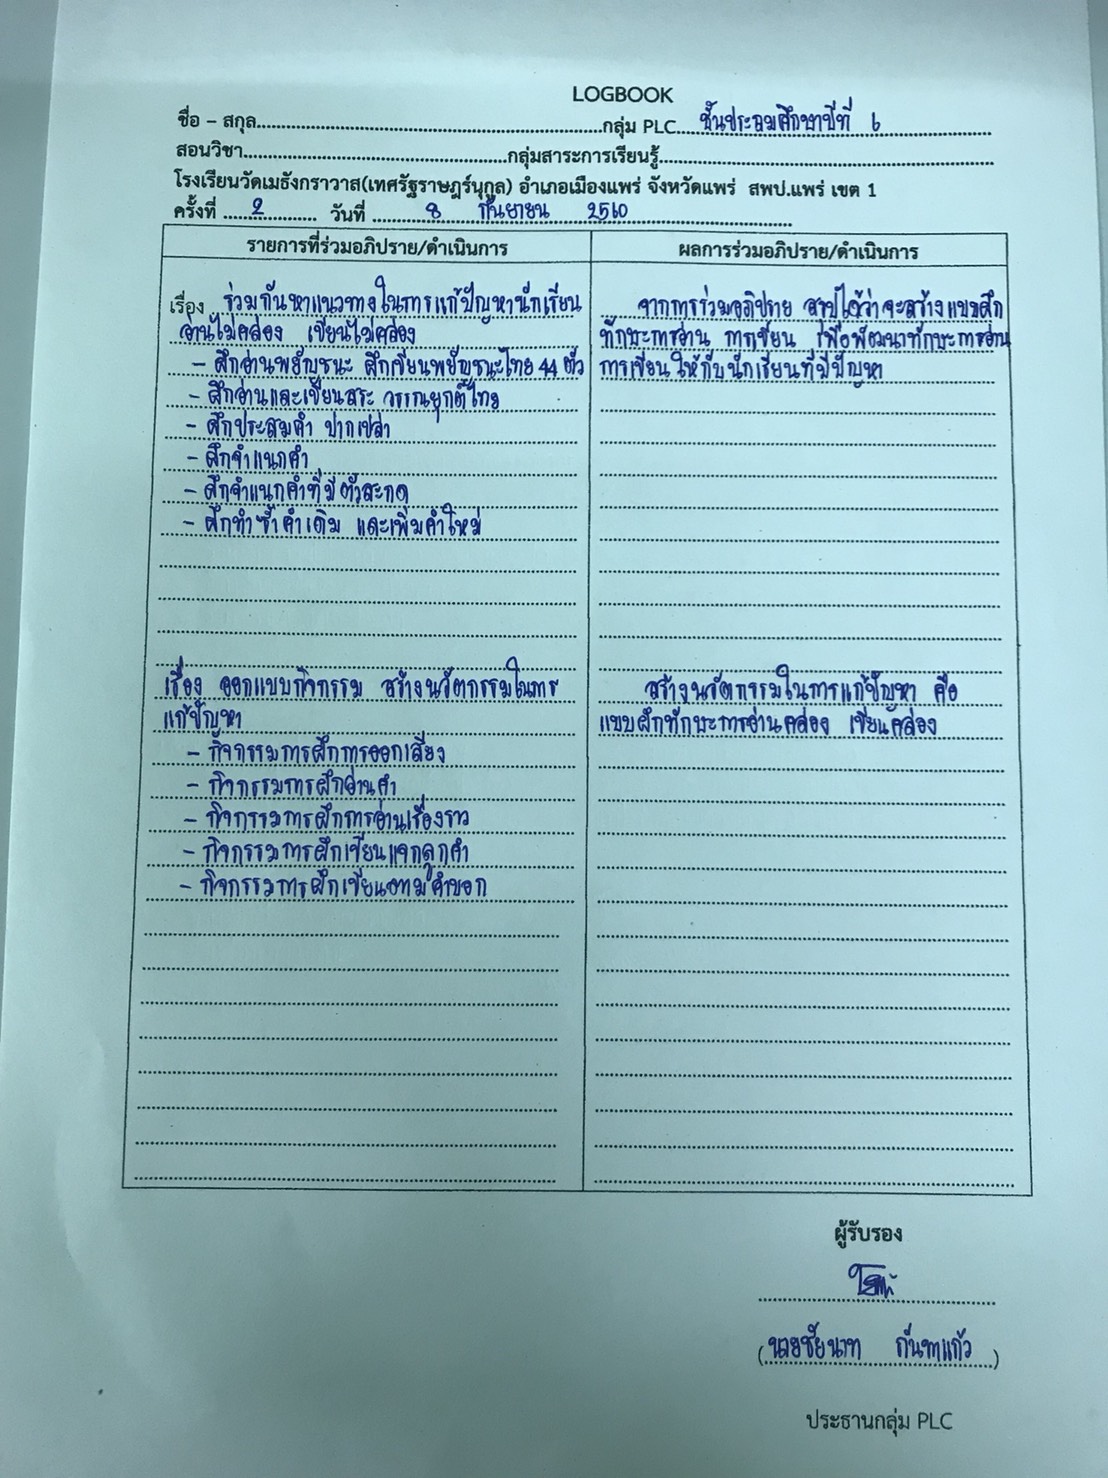 LOGBOOK
ชื่อ – สกุล............กลุ่ม PLC....ชั้นประถมศึกษาปีที่ 6
สอนวิชา............กลุ่มสาระการเรียนรู้............
โรงเรียนวัดเมธังกราวาส(เทศรัฐราษฎร์นุกูล) อำเภอเมืองแพร่ จังหวัดแพร่ สพป.แพร่ เขต 1
ครั้งที่ 2 วันที่ 8 กันยายน 2560
รายการที่ร่วมอภิปราย/ดำเนินการ
เรื่อง ร่วมกันหาแนวทางในการแก้ปัญหานักเรียน
อ่านไม่คล่อง เขียนไม่คล่อง
- ฝึกอ่านพยัญชนะ ฝึกเขียนพยัญชนะไทย 44 ตัว
- ฝึกอ่านและเขียนสระ วรรณยุกต์ไทย
- ฝึกประสมคำ ปากเปล่า
- ฝึกจำแนกคำ
- ฝึกจำแนกคำที่มีตัวสะกด
- ฝึกทำซ้ำคำเดิม และเพิ่มคำใหม่
เรื่อง ออกแบบกิจกรรม สร้างนวัตกรรมในการ
แก้ปัญหา
- กิจกรรมการฝึกการออกเสียง
- กิจกรรมการฝึกอ่านคำ
- กิจกรรมการฝึกการอ่านเรื่องราว
- กิจกรรมการฝึกเขียนแจกลูกคำ
- กิจกรรมการฝึกเขียนตามคำบอก
ผลการร่วมอภิปราย/ดำเนินการ
จากการร่วมอภิปราย สรุปได้ว่าจะสร้างแบบฝึก
ทักษะการอ่าน การเขียน เพื่อพัฒนาทักษะการอ่าน
การเขียนให้กับนักเรียนที่มีปัญหา
สร้างนวัตกรรมในการแก้ปัญหา คือ
แบบฝึกทักษะการอ่านคล่อง เขียนคล่อง
ผู้รับรอง
(นายชัยนาท กันทาแก้ว)
ประธานกลุ่ม PLC